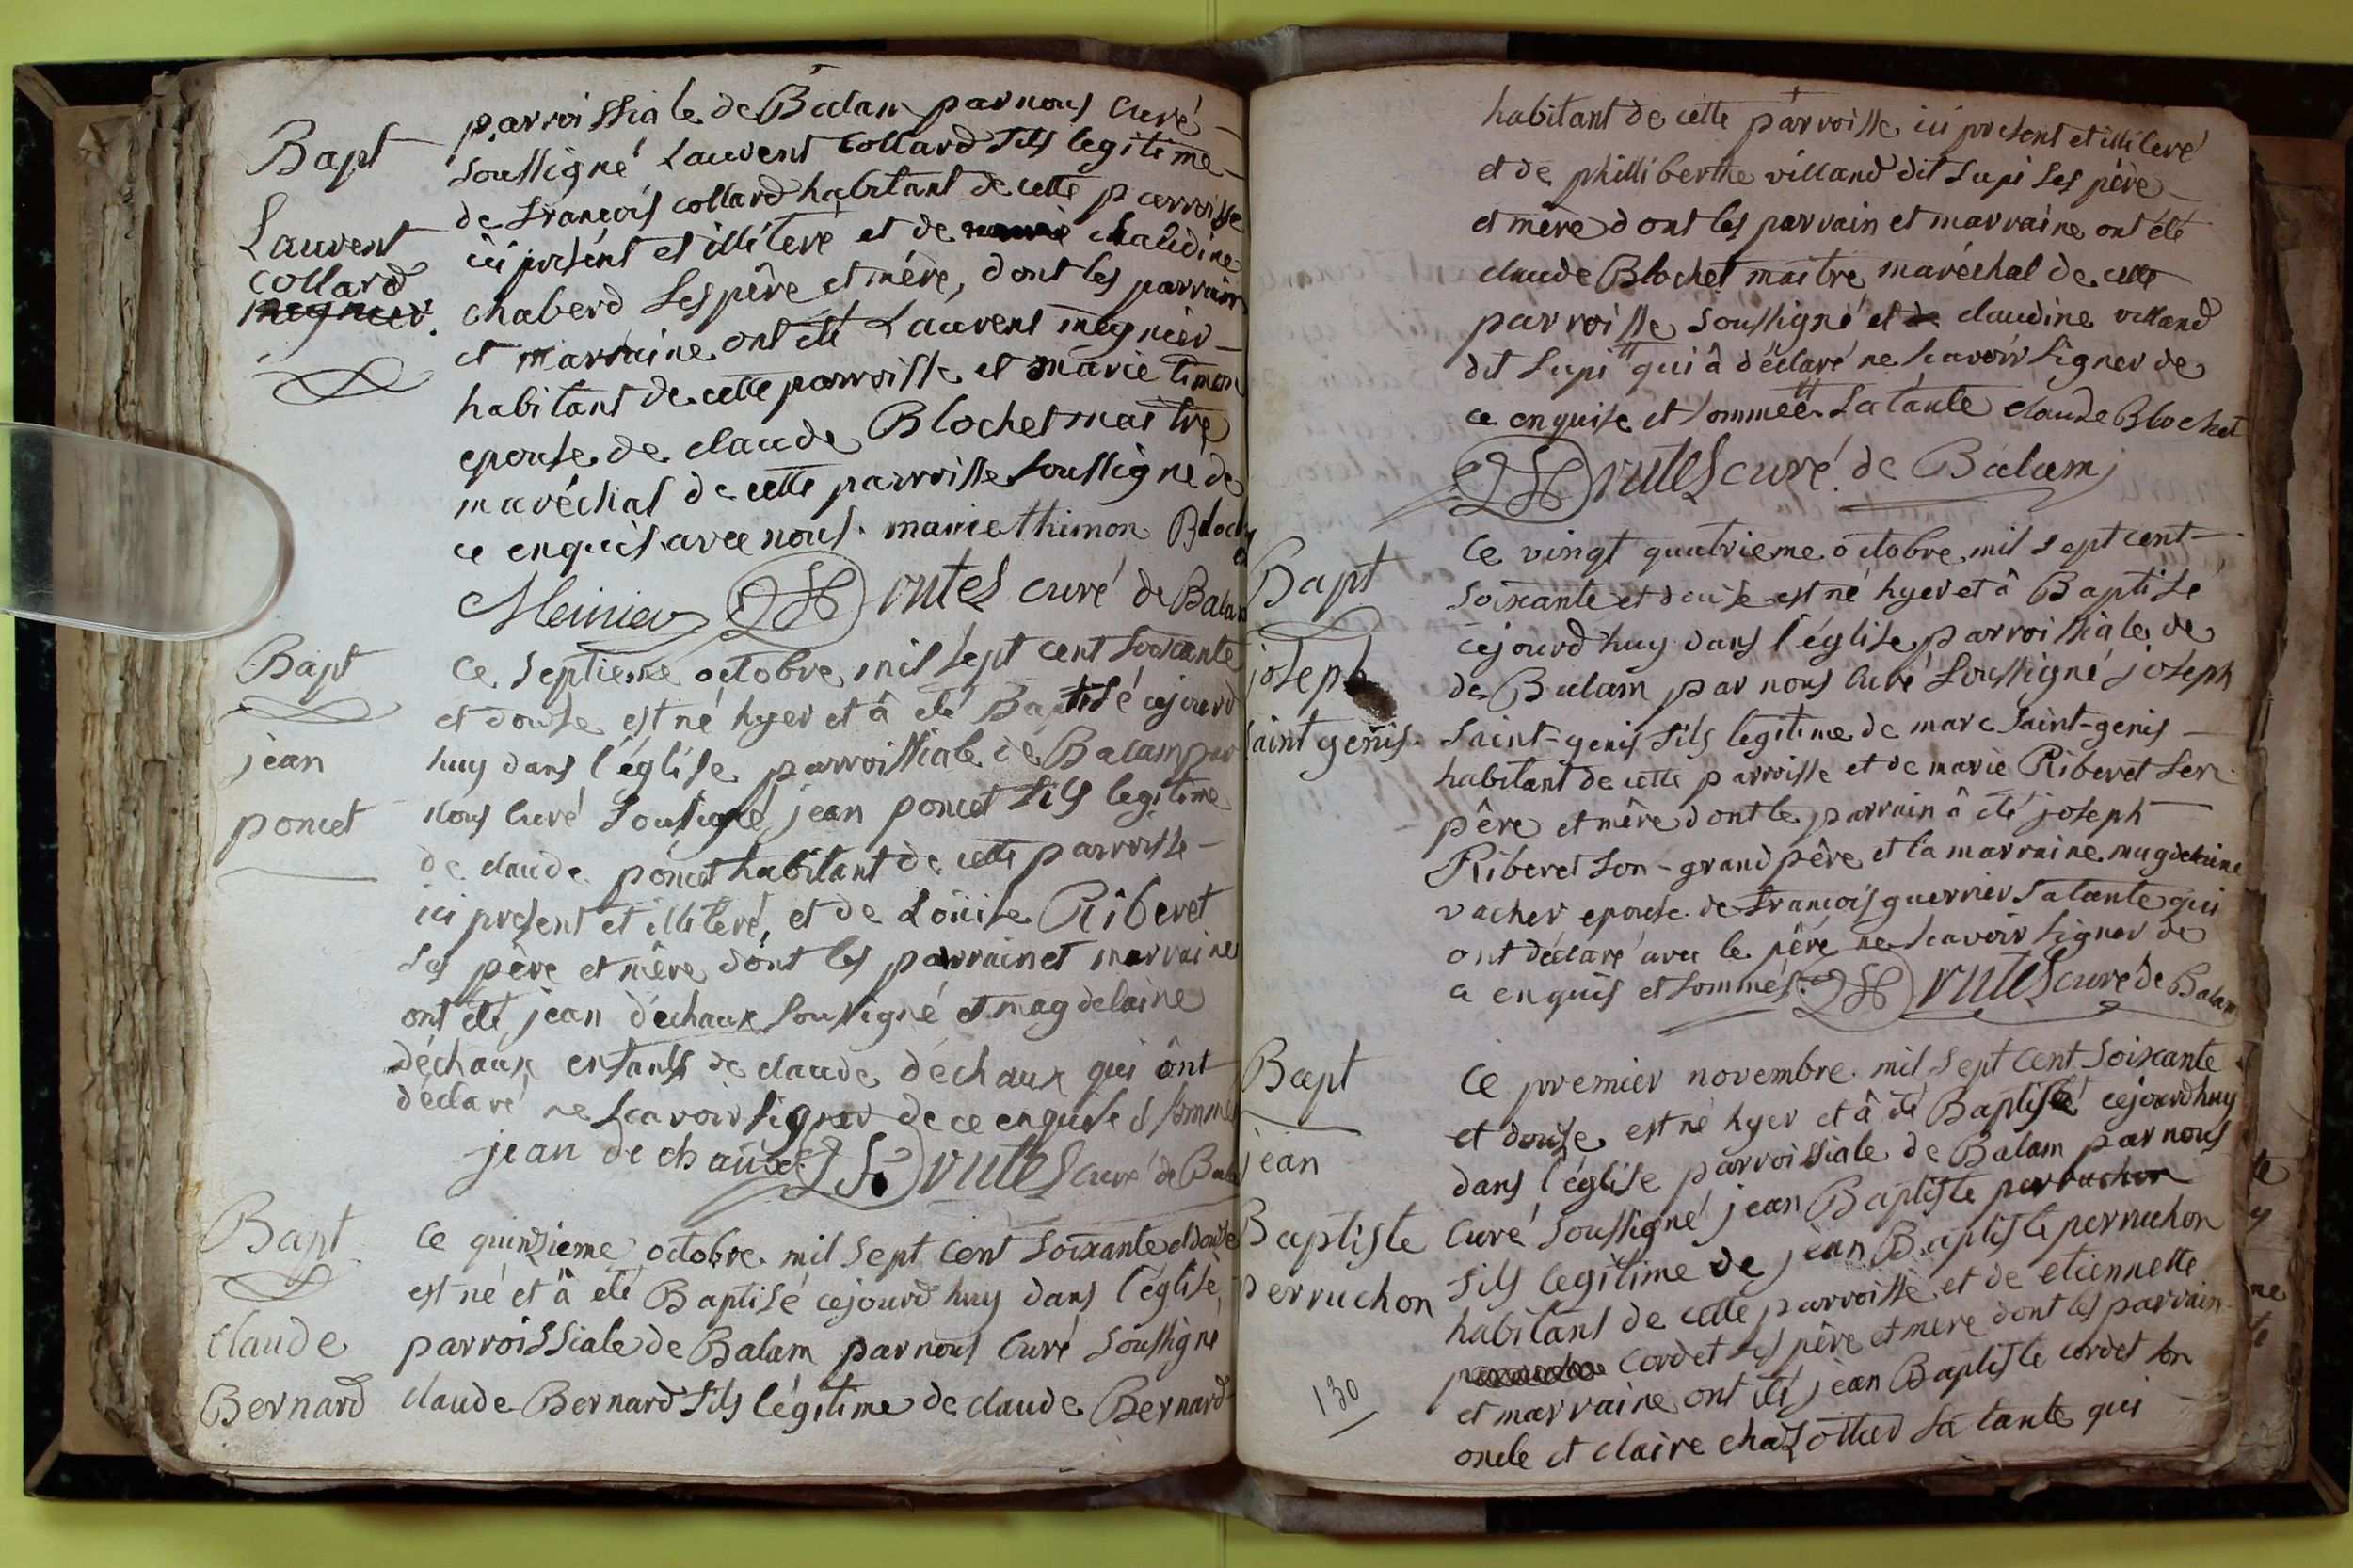 Bapt
Laurent
collard
parroissiale de Balam par nous Curé
soussigné Laurent Collard fils legitime
de françois collard habitant de cette parroisse
ici present et illiteré et de claudine
chaberd ses père et mère, dont les parrain
et marraine ont été Laurent megnier
habitant de cette parroisse et marie timon
epouse de claude Blochet maitre
maréchal de cette parroisse soussigné de
ce enquis avec nous. marie thimon Bloch
Meinier curé de Balam
Bapt
jean
poncet
Ce septieme octobre mil sept cent soixante
et douse est né hyer et â eté Baptisé cejourd
huy dans l'église parroissiale de Balam par
nous Curé soussigné jean poncet fils legitime
de claude poncet habitant de cette parroisse
ici present et illiteré, et de Loüise Riberet
ses père et mêre dont les parrain et marraine
ont eté jean déchaux soussigné et magdelaine
déchaux enfants de claude déchaux qui ônt
déclaré ne scavoir signer de ce enquise & sommé
jean de chaüx curé de Bala
Bapt
claude
Bernard
Ce quinzieme octobre mil sept cent soixante et douse
est né et â eté Baptisé cejourd huy dans l'église
parroissiale de Balam par nous Curé soussigné
claude Bernard fils légitime de claude Bernard
habitant de cette parroisse ici present et illiteré
et de philliberthe villand dit Lupi ses père
et mère dont les parrain et marraine ont été
claude Blochet maitre maréchal de cette
parroisse soussigné et claudine villand
dit Lupi qui â déclaré ne scavoir signer de
ce enquise et sommée sa tante claude Blochet
curé de Balam
Bapt
joseph
saint genis
Ce vingt quatrieme octobre mil sept cent
soixante et douse est né hyer et â Baptisé
cejourd huy dans l'église parroissiale de
de Balam par nous Curé soussigné joseph
saint-genis fils legitime de marc saint-genis
habitant de cette parroisse et de marie Riberet ses
père et mêre dont le parrain â eté joseph
Riberet son-grand père et la marraine magdelaine
vacher epouse de françois guerrier sa tante qui
ont déclaré avec le pêre ne scavoir signer de
ce enquis et sommés. curé de Balam
Bapt
jean
Baptiste
perruchon
Ce premier novembre mil sept cent soixante
et douse est né hyer et â eté Baptisé cejourd huy
dans l'église parroissiale de Balam par nous
Curé soussigné jean Baptiste perruchon
fils legitime de jean Baptiste perruchon
habitant de cette parroisse et de etiennette
cordet ses père et mere dont les parrain
et marraine ont eté jean Baptiste cordet son
oncle et claire chazottier sa tante qui
130